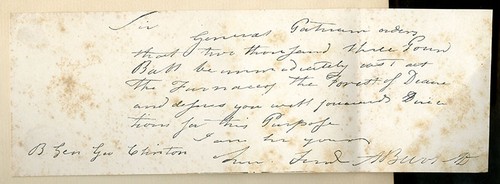 Sir
General Putnam orders
that two thousand three Poun
Ball be immediately cast at
the Furnace of the Forest of Deane
and desires you will forward Direc
tions for this Purpose
I am Sir yours
B Gen Geo Clinton